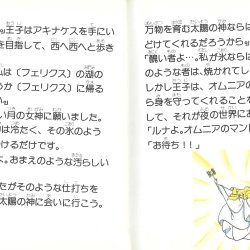 万物を育む太陽の神ならば
どけてくれるだろうから。
「醜い者よ…。私が氷ならば
のような者は焼かれてし
しかし王子は、オムニア
ら身を守ってくれることを
して、それが夜の世界にお
「ルナよ。オムニアのマント
「お待ち!!」
王子はアキナケスを手にい
を目指して、西へ西へと歩き
は〔フェリクス〕の湖の
うか〔フェリクス〕に帰る
い月の女神に願いました。
は冷たく、その氷のよう
けるだけです。
よ。おまえのような汚らしい
たがそのような仕打ちを
太陽の神に会いに行こう。